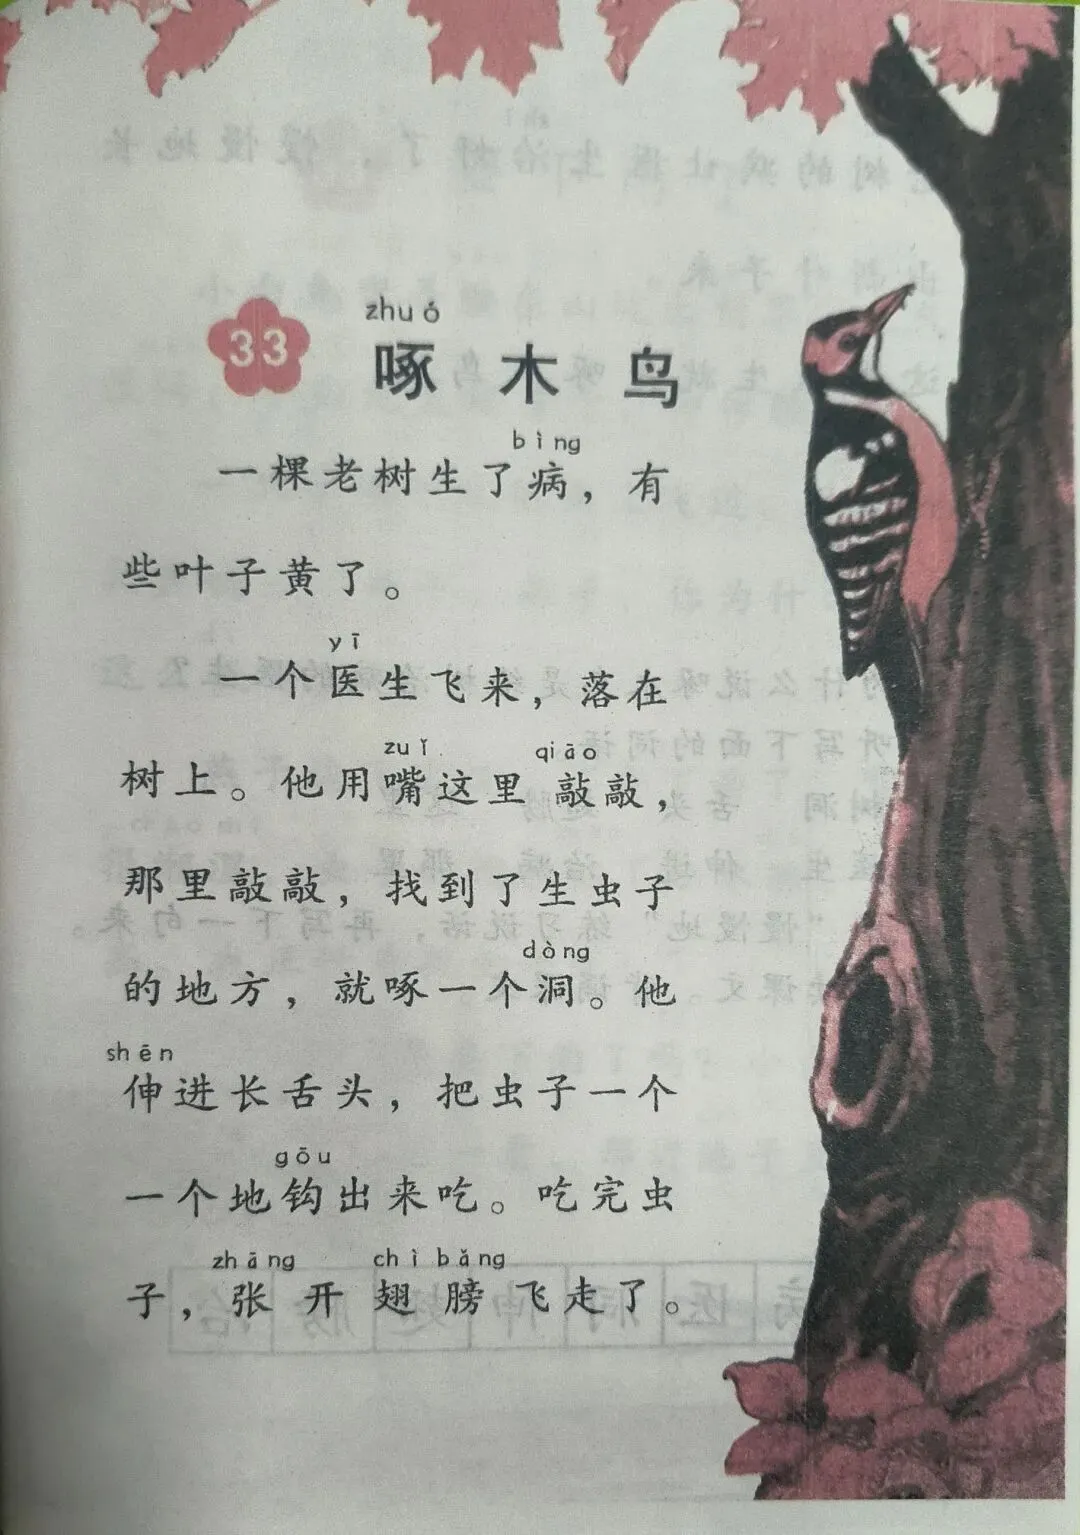 33
zhuó
啄木鸟
bìng
一棵老树生了病，有
些叶子黄了。
yī
一个医生飞来，落在
zuǐ qiāo
树上。他用嘴这里敲敲，
那里敲敲，找到了生虫子
dòng
的地方，就啄一个洞。他
shēn
伸进长舌头，把虫子一个
gōu
一个地钩出来吃。吃完虫
zhāng chì bǎng
子，张开翅膀飞走了。